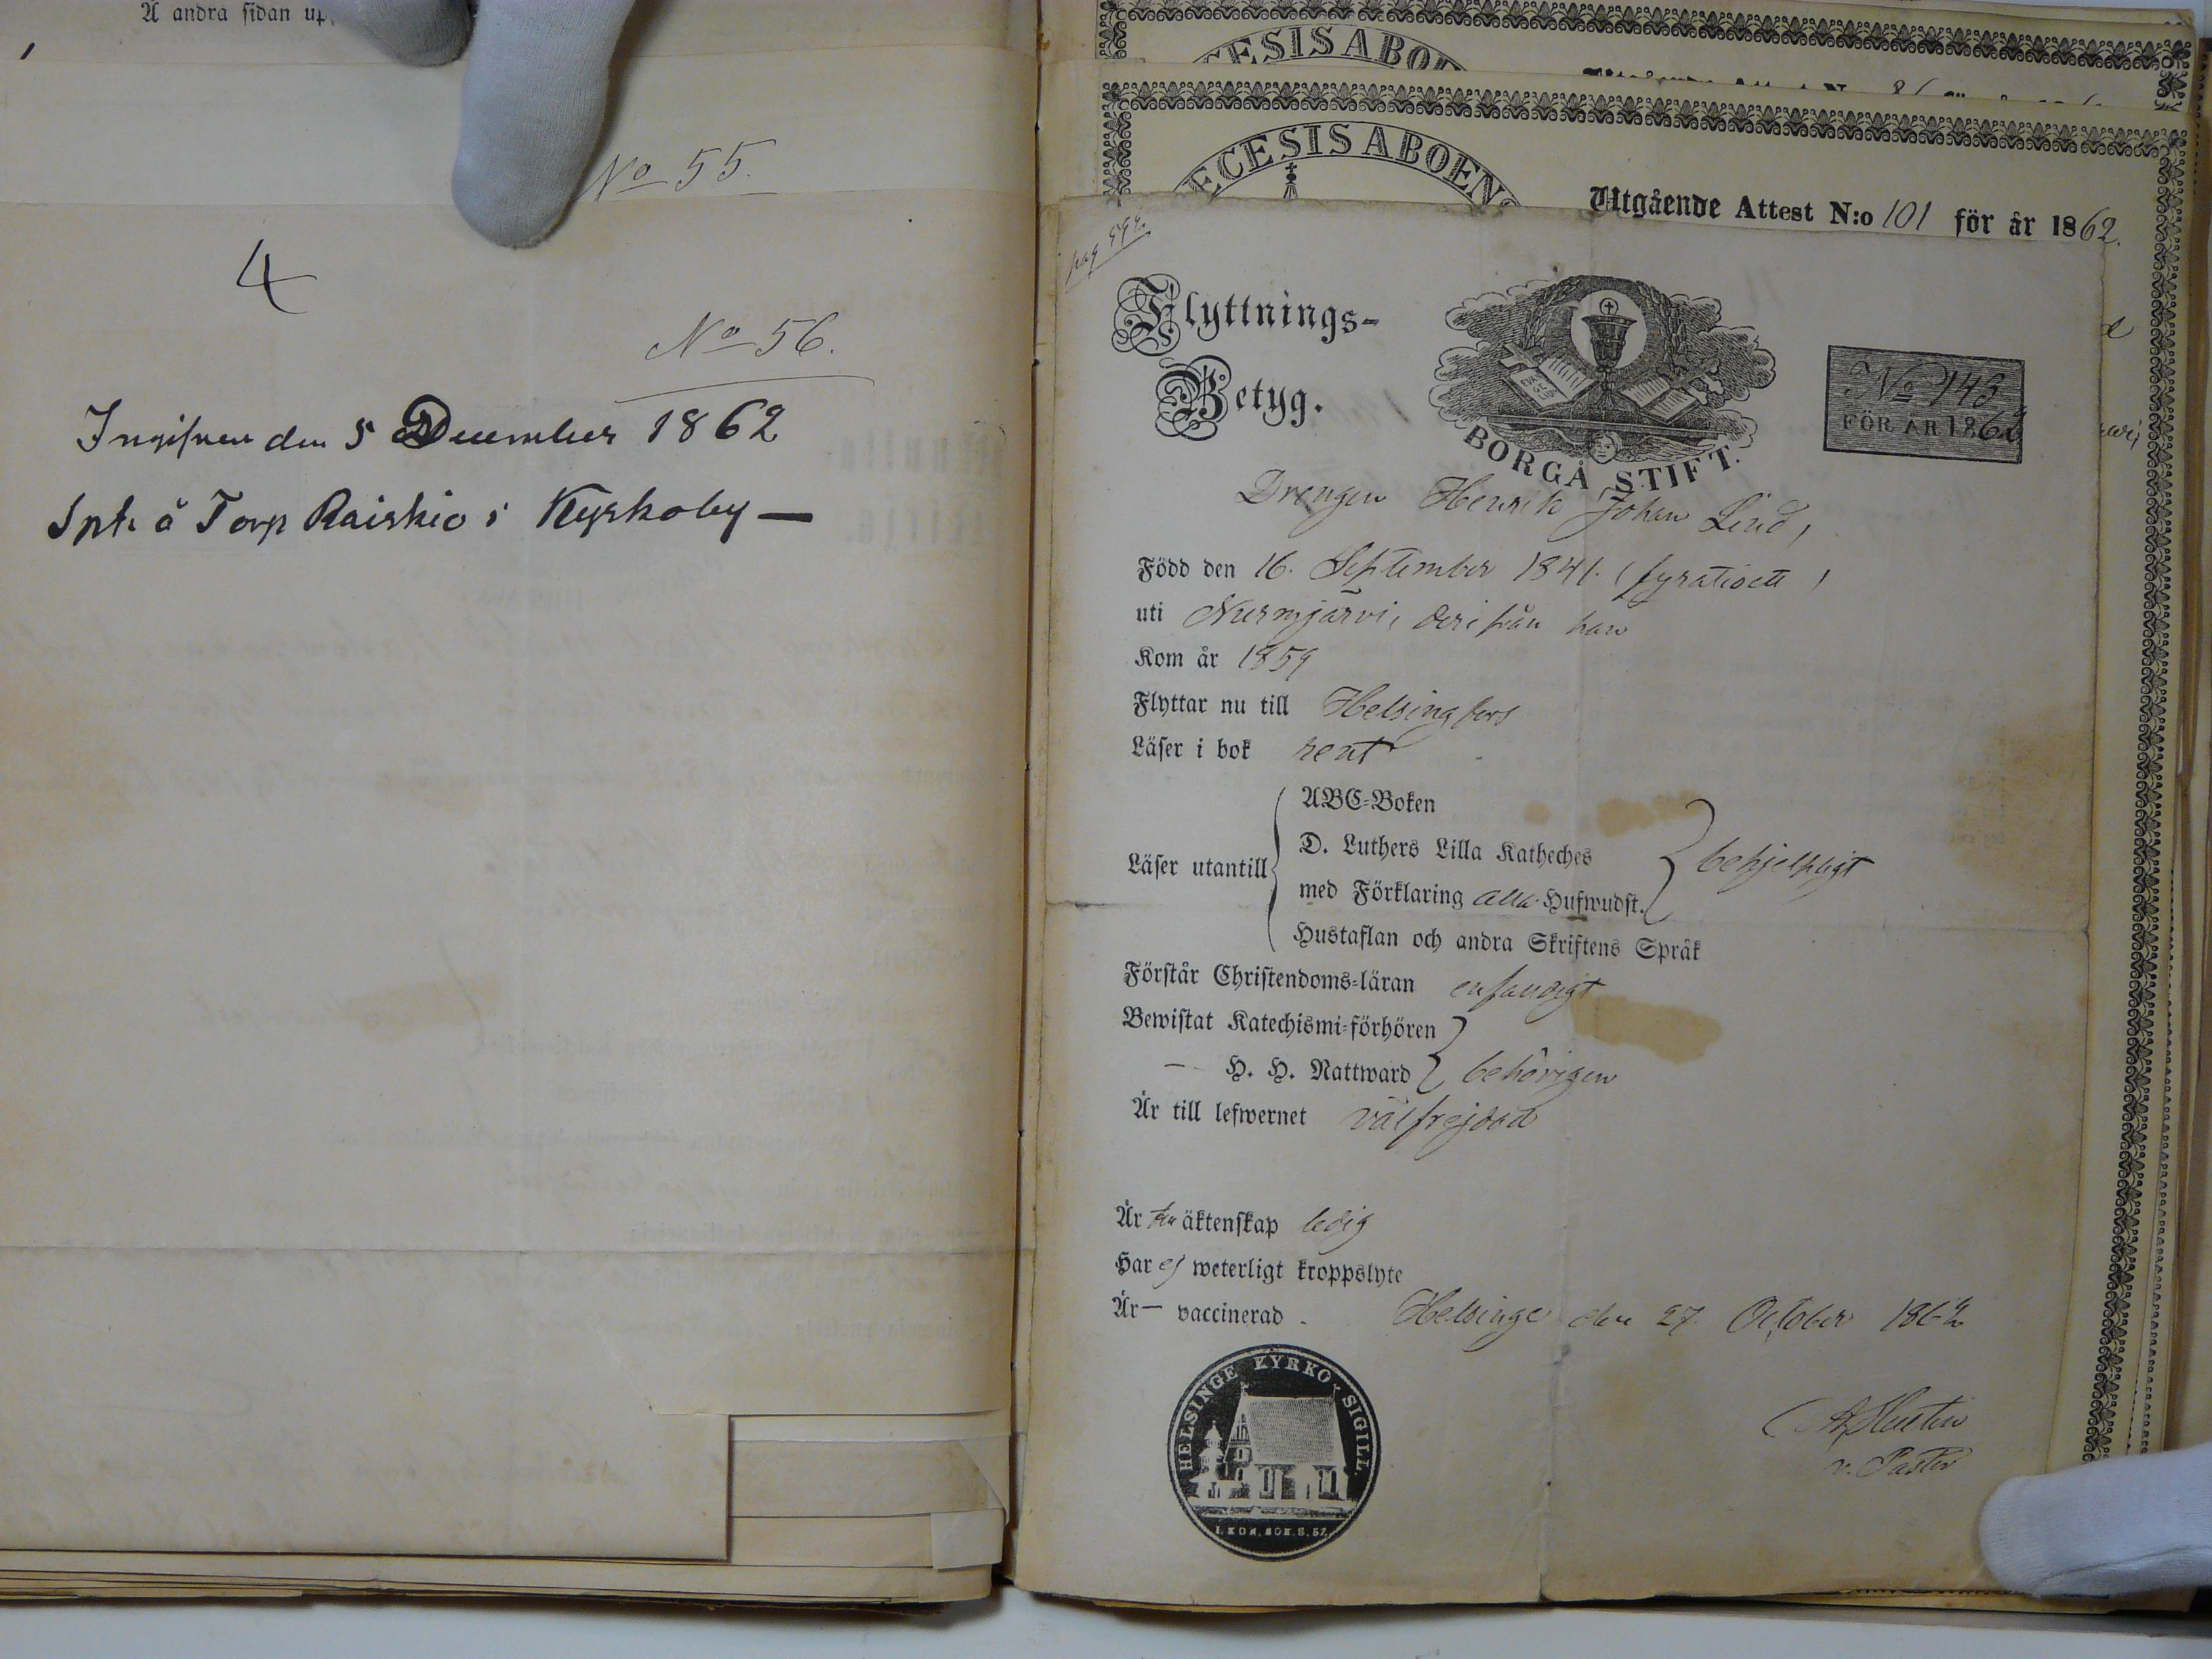 Å andra sidan up
No 55.
4
No 56.
Ingifven den 5 December 1862
Spk å Torp Raiskio i Kyrkoby —
ECESIS ABOE
ECESIS ABOENS
Utgående Attest N:o 101 för år 1862.
pag 592.
Flyttnings-
Betyg.
BORGÅ STIFT.
No 143
FÖR ÅR 1862
Drengen Henrik Johan Lind,
Född den 16. September 1841. (fyratioett)
uti Nurmjärvi, derifrån han
Kom år 1859
Flyttar nu till Helsingfors
Läser i bok rent
ABC-Boken
D. Luthers Lilla Katheches
Läser utantill
behjelpligt
med Förklaring alla Hufwudst.
Hustaflan och andra Skriftens Språk
Förstår Christendoms-läran enfaldigt
Bewistat Katechismi-förhören
— H. H. Nattward behörigen
Är till lefwernet välfrejdad
Är från äktenskap ledig
Har ej weterligt kroppslyte
Är — vaccinerad.
Helsinge den 27. October 1862
HELSINGE KYRKO SIGILL.
1. KON. BOK. 8. 57.
v. Pastor